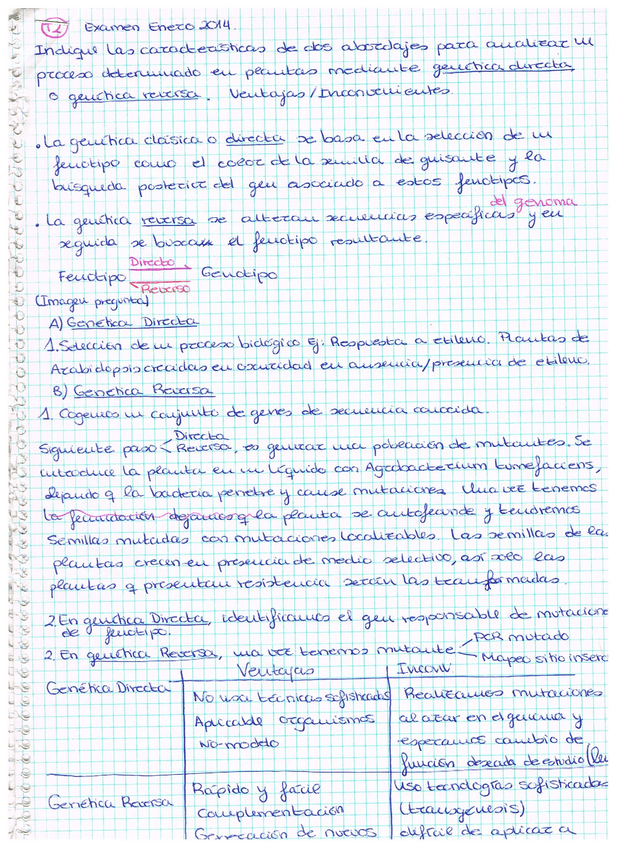 T2 Examen Enero 2014.
Indique las características de dos abordajes para analizar un
proceso determinado en plantas mediante genética directa
o genética reversa. Ventajas/Inconvenientes
• La genética clásica o directa se basa en la selección de un
fenotipo como el color de la semilla de guisante y la
búsqueda posterior del gen asociado a estos fenotipos.
del genoma
• La genética reversa se alteran secuencias específicas y en
seguida se busca el fenotipo resultante.
Directo
Fenotipo Genotipo
Reverso
(Imagen pregunta)
A) Genética Directa
1. Selección de un proceso biológico Ej: Respuesta a etileno. Plantas de
Arabidopsis crecidas en oscuridad en ausencia/presencia de etileno.
B) Genética Reversa
1. Cogemos un conjunto de genes de secuencia conocida.
Directa
Siguiente paso Reversa, es generar una población de mutantes. Se
introduce la planta en un líquido con Agrobacterium tumefaciens,
dejando q la bacteria penetre y cause mutaciones. Una vez tenemos
la fecundación dejamos q la planta se autofecunde y tendremos
semillas mutadas con mutaciones localizables. Las semillas de la
plantas crecen en presencia de medio selectivo, así solo las
plantas q presentan resistencia serán las transformadas.
2. En genética Directa, identificamos el gen responsable de mutacione
de fenotipo.
PCR mutado
2. En genética Reversa, una vez tenemos mutante
Mapeo sitio inserc
Ventajas Inconv
Genética Directa No usa técnicas sofisticadas Realizamos mutaciones
Aplicable organismos al azar en el genoma y
no-modelo esperamos cambio de
función deseada de estudio
Genética Reversa Rápido y fácil Uso tecnologías sofisticadas
Complementación (transgénesis)
Generación de nuevos difícil de aplicar a